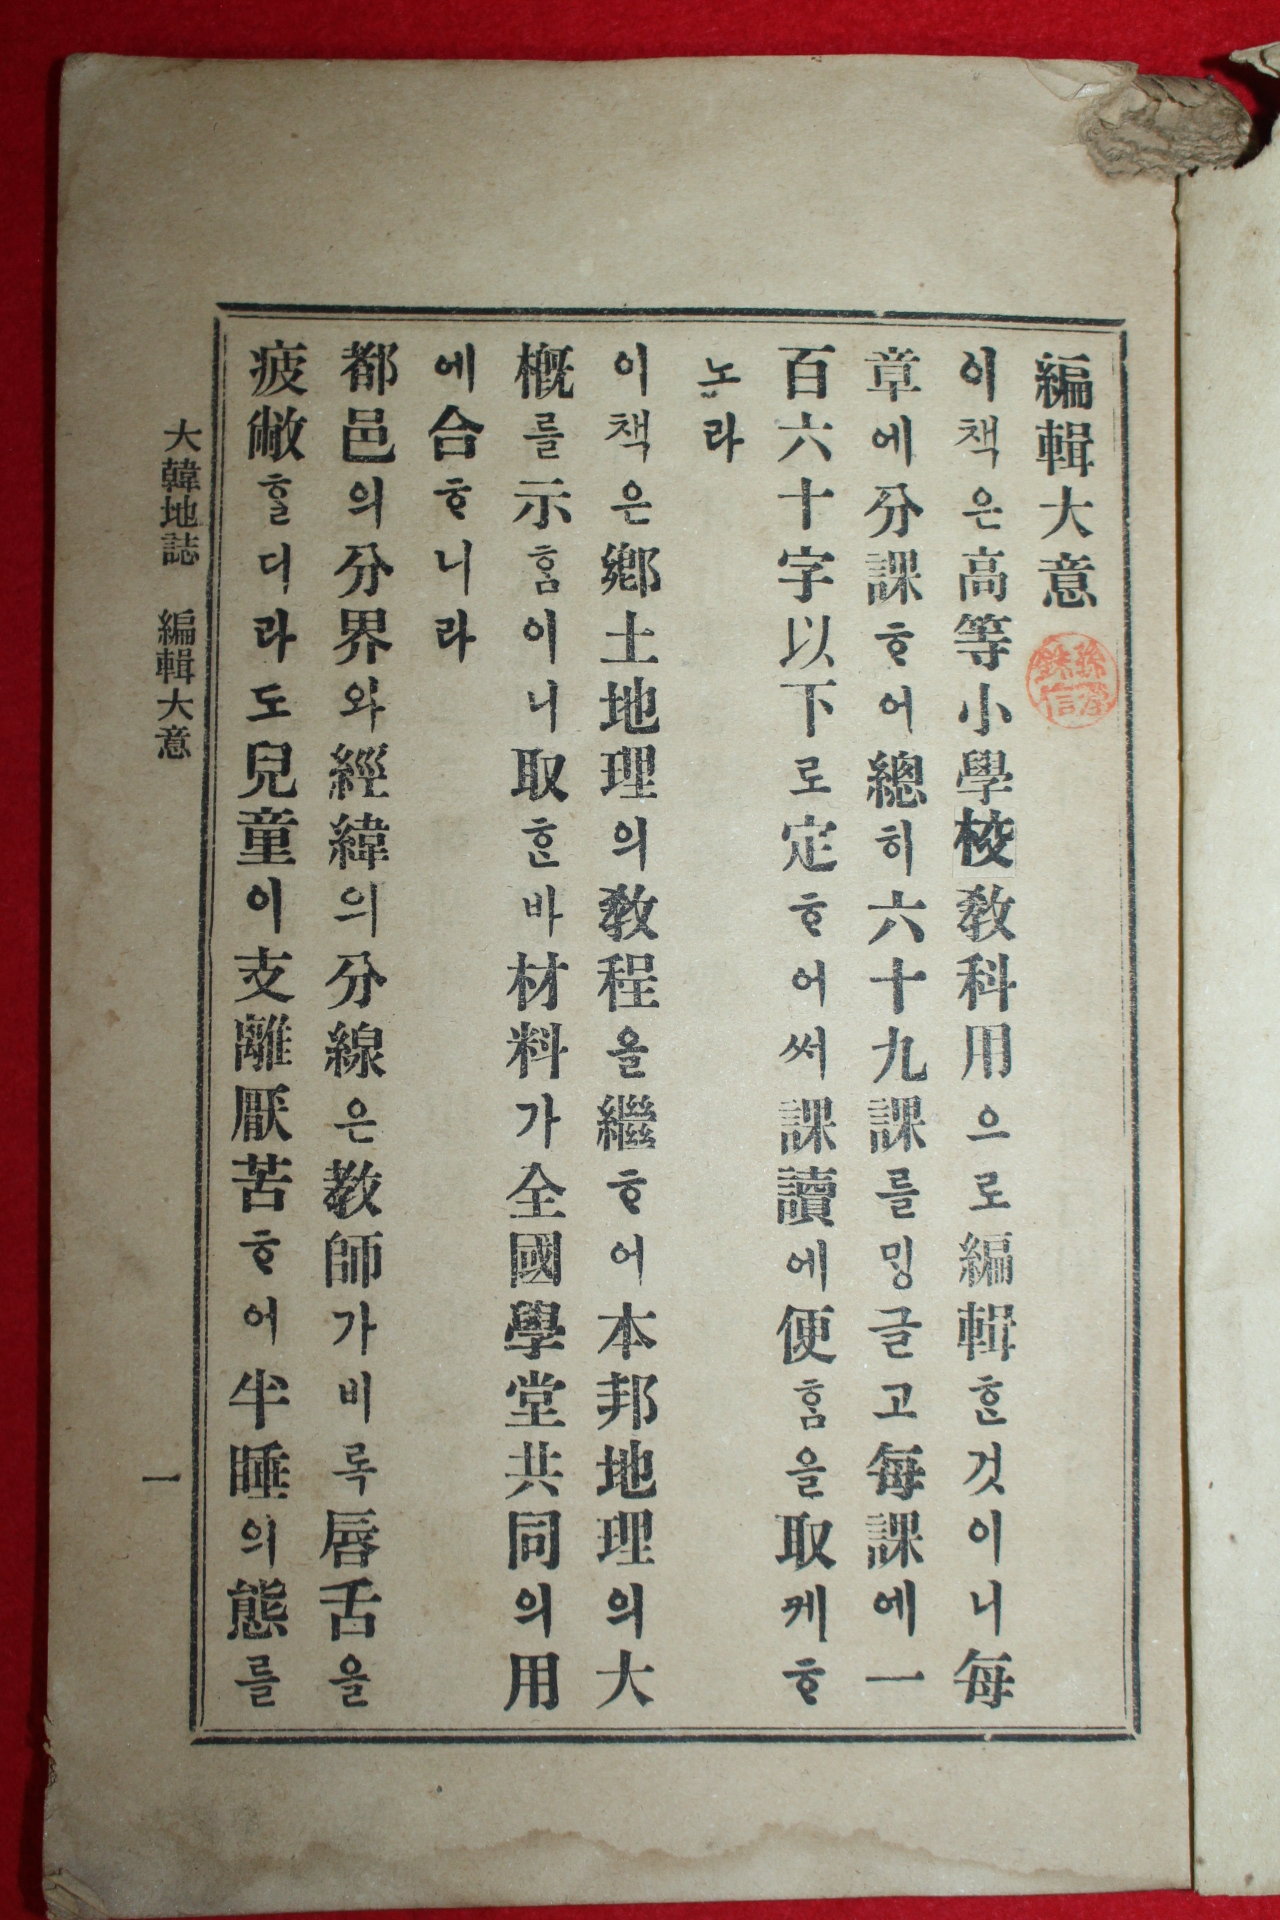 編輯大意
이책은高等小學校敎科用으로編輯ᄒᆞᆫ것이니每
章에分課ᄒᆞ어總히六十九課를밍글고每課에一
百六十字以下로定ᄒᆞ어써課讀에便ᄒᆞᆷ을取케ᄒᆞ
노라
이책은鄕土地理의敎程을繼ᄒᆞ어本邦地理의大
槪를示ᄒᆞᆷ이니取ᄒᆞᆫ바材料가全國學堂共同의用
에合ᄒᆞ니라
都邑의分界와經緯의分線은敎師가비록唇舌을
疲敝ᄒᆞᆯ디라도兒童이支離厭苦ᄒᆞ어半睡의態를
大韓地誌 編輯大意
一